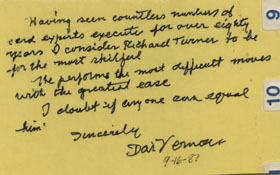 "Having seen countless numbers of
card experts execute for over eighty
years I consider Richard Turner to be
for the most skilful
He performs the most difficult moves
with the greatest ease
I doubt if anyone can equal
him"
Sincerely
Dai Vernon
9-16-87
9
10